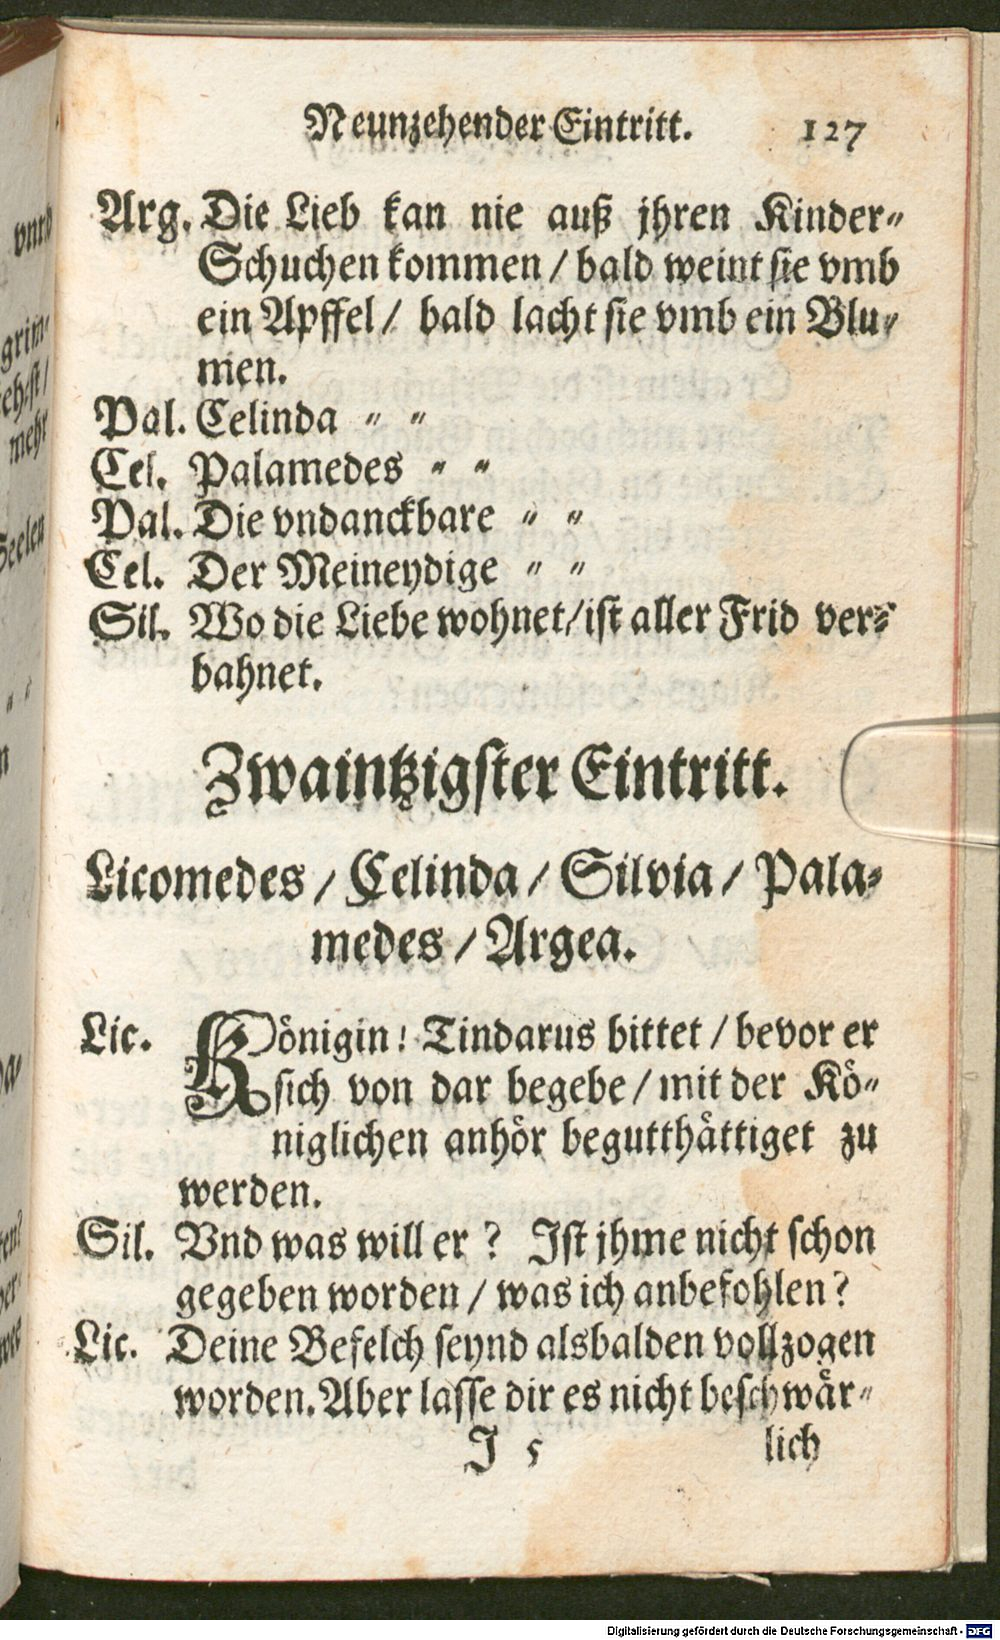 Neunzehender Eintritt. 127
Arg. Die Lieb kan nie auß jhren Kinder-
Schuchen kommen / bald weint sie vmb
ein Apffel / bald lacht sie vmb ein Blu-
men.
Pal. Celinda - -
Cel. Palamedes - -
Pal. Die vndanckbare - -
Cel. Der Meineydige - -
Sil. Wo die Liebe wohnet / ist aller Frid ver-
bahnet.
Zwaintzigster Eintritt.
Licomedes / Celinda / Silvia / Pala-
medes / Argea.
Lic. Königin! Tindarus bittet / bevor er
sich von dar begebe / mit der Kö-
niglichen anhör begutthättiget zu
werden.
Sil. Vnd was will er? Ist jhme nicht schon
gegeben worden / was ich anbefohlen?
Lic. Deine Befelch seynd alsbalden vollzogen
worden. Aber lasse dir es nicht beschwär-
J 5 lich
Digitalisierung gefördert durch die Deutsche Forschungsgemeinschaft - DFG